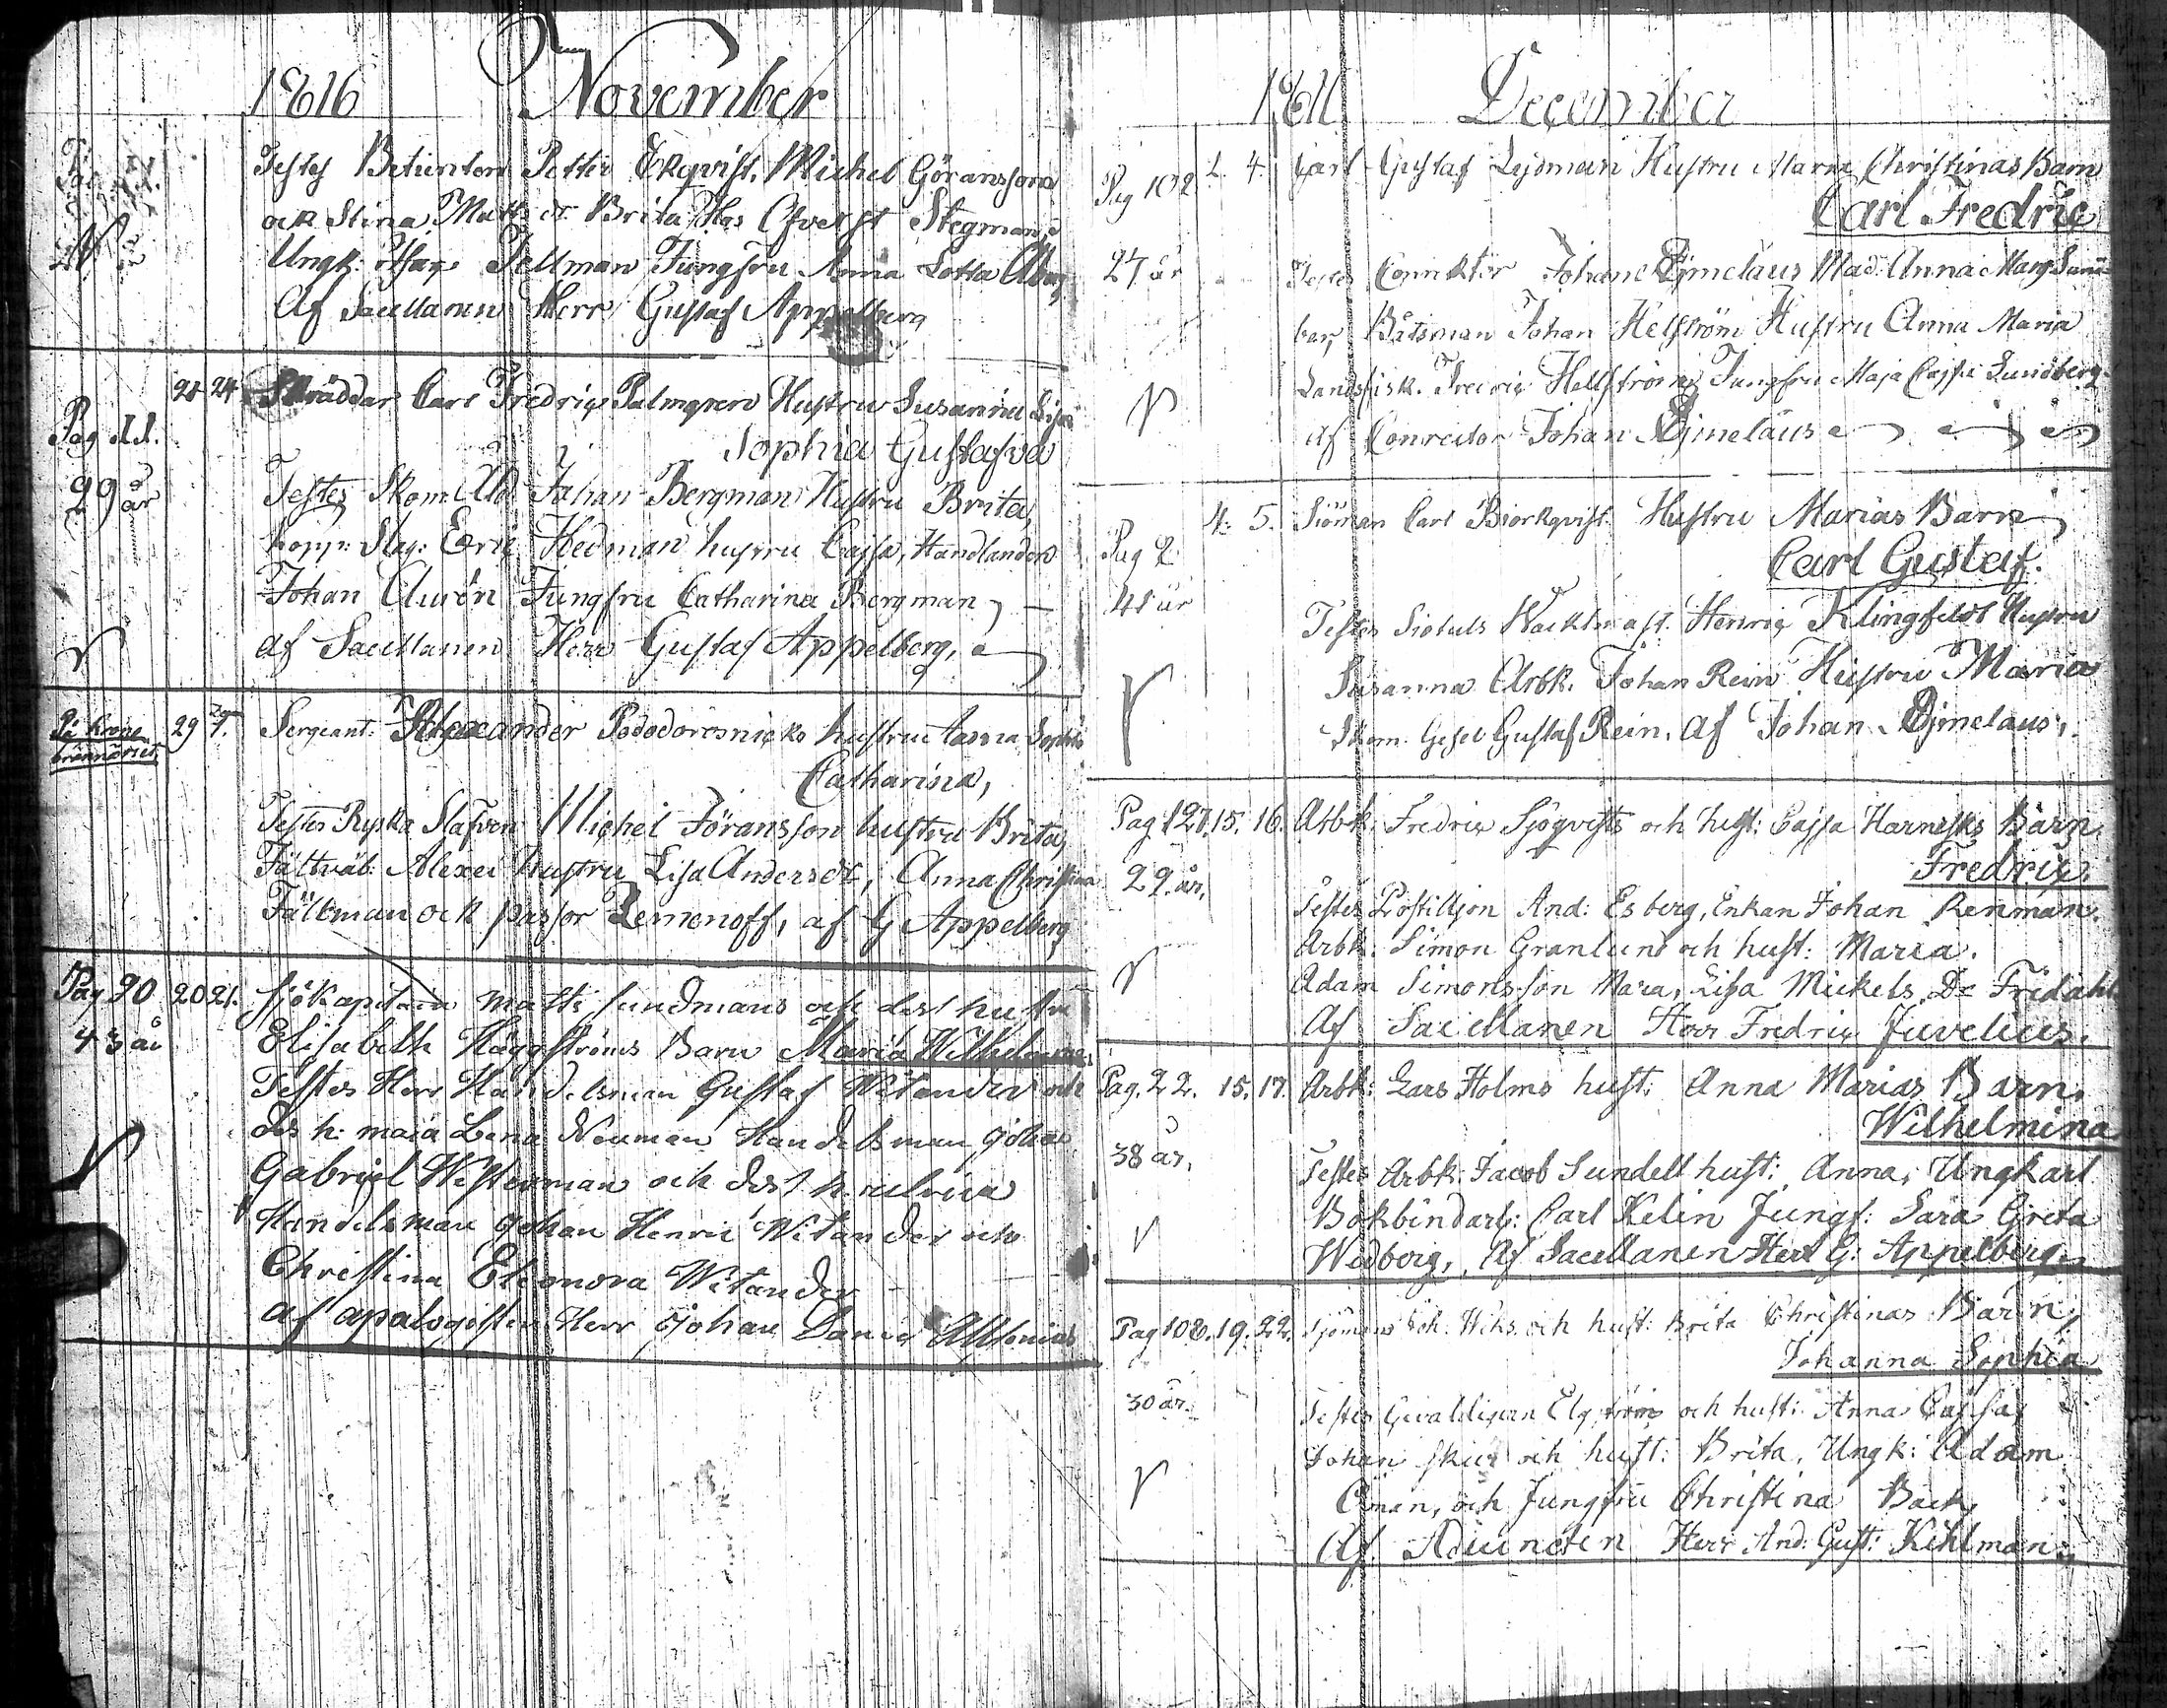 1816 November
Testes Petter Ekqvist, Michel Göransson
och Stina Matts dr Brita Stegman,
Ungk: Tellman Jungfru Anna Lotta
Af Sacellanen Herr Gustaf Appelberg
28 24 Skräddar Carl Fredric Palmgren Hustru Susanna Lisa
Pag 11.
Sophia Gustafva
29 år
Testes Skom. Åld. Johan Bergman Hustru Brita,
Kopp: Slag: Eric Hedman hustru Cajsa, Handlanden
Johan Jungfru Catharina Bergman
af Sacellanen Herr Gustaf Appelberg,
På Krono
bränneriet
29 Sergeant Alexander hustru Anna Sophia
Catharina,
Testes Ryska Michel Jöransson hustru Brita,
Fältväb: Alexei hustru Lisa Andersdr, Anna Christina
Fältman och passor Zemenoff, af G Appelberg
Pag 90 20 21. Sjökapitain Matts Sundmans och dess hustru
43 år
Elisabeth Häggströms Barn Maria Wilhelmina
Testes Herr Handelsman Gustaf Witander och
des h: maia Lena Neuman Handelsman Johan
Gabriel Westerman och dess h:
Handelsman Johan Henric Witander och
Christina Eleonora Witander
af apologisten Herr Johan Daniel Alltonius
1811 December
Pag 102 2. 4. Carl Gustaf Lydman Hustru Maria Christinas Barn
Carl Fredric
27 år
Testes Conrektor Johan Ejmelæus Mad. Anna Marg
Båtsman Johan Helström Hustru Anna Maria
Landsfisk. Fredric Hellström, Jungfru Maja Cajsa Sundberg
af Conrector Johan Ejmelæus
Pag 2 4. 5. Siöman Carl Biörkqvist Hustru Marias Barn
Carl Gustaf.
41 år
Testes Siötuls Wacktmäst. Henric Klingfeldt Hustru
Susanna Arbk. Johan Rein Hustru Maria
Skom. Gesel Gustaf Rein. Af Johan Ejmelæus,
Pag 127. 15. 16. Arbk. Fredric Sjöqvists och hust: Cajsa Harnesks Barn.
Fredric.
29. år,
Testes Postilljon And: Esberg, Enkan Johan Renman.
Arbk. Simon Granlund och hust: Maria.
Adam Simonsson Maria, Lisa Mickels Dr Fridahl
Af Sacellanen Herr Fredric Juvelius.
Pag. 22. 15. 17. Arbk: Lars Holms hust: Anna Marias Barn.
Wilhelmina
38 år,
Testes Arbk: Jacob Sundell hust: Anna, Ungkarl
Bokbindarl: Carl Kelin Jungf: Sara Greta
Wedberg, Af Sacellanen Herr G: Appelberg
Pag 108. 19. 22. Sjöman Joh. Wiks och hust: Brita Christinas Barn,
Johanna Sophia
30 år.
Testes Gevaldigern Elgström och hust: Anna Cajsa,
Johan Skur och hust: Brita, Ungk: Adam
Öman, och Jungfru Christina Back,
Af Adiuncten Herr And: Gust: Kihlman